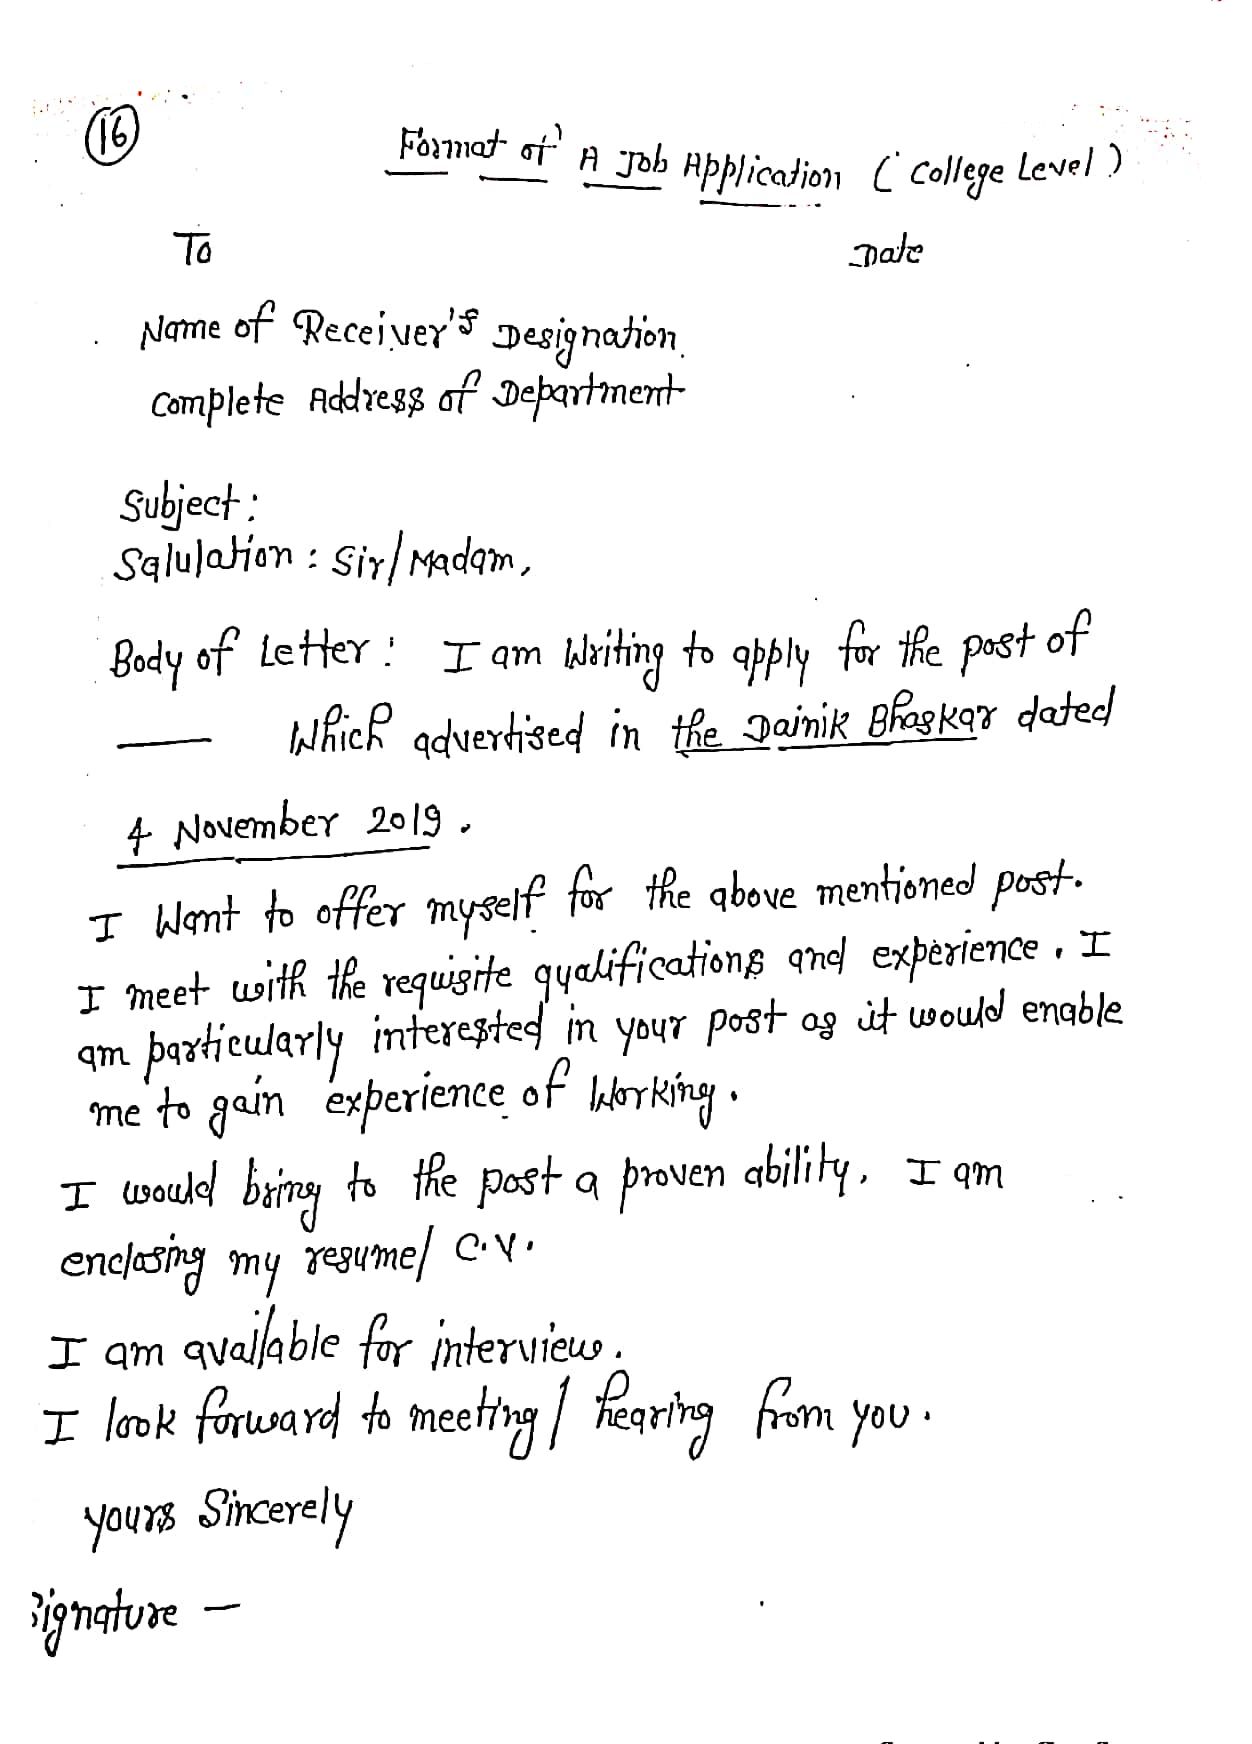 16
Format of A Job Application ( College Level )
To Date
Name of Receiver's Designation.
Complete Address of Department
Subject :
Salulation : Sir/Madam,
Body of Letter : I am Writing to apply for the post of
—— Which advertised in the Dainik Bhaskar dated
4 November 2019 .
I Want to offer myself for the above mentioned post.
I meet with the requisite qyalifications and experience . I
am particularly interested in your post as it would enable
me to gain experience of Working .
I would bring to the post a proven ability. I am
enclosing my resume/ C.V.
I am available for interview .
I look forward to meeting / hearing from you .
yours Sincerely
Signature —